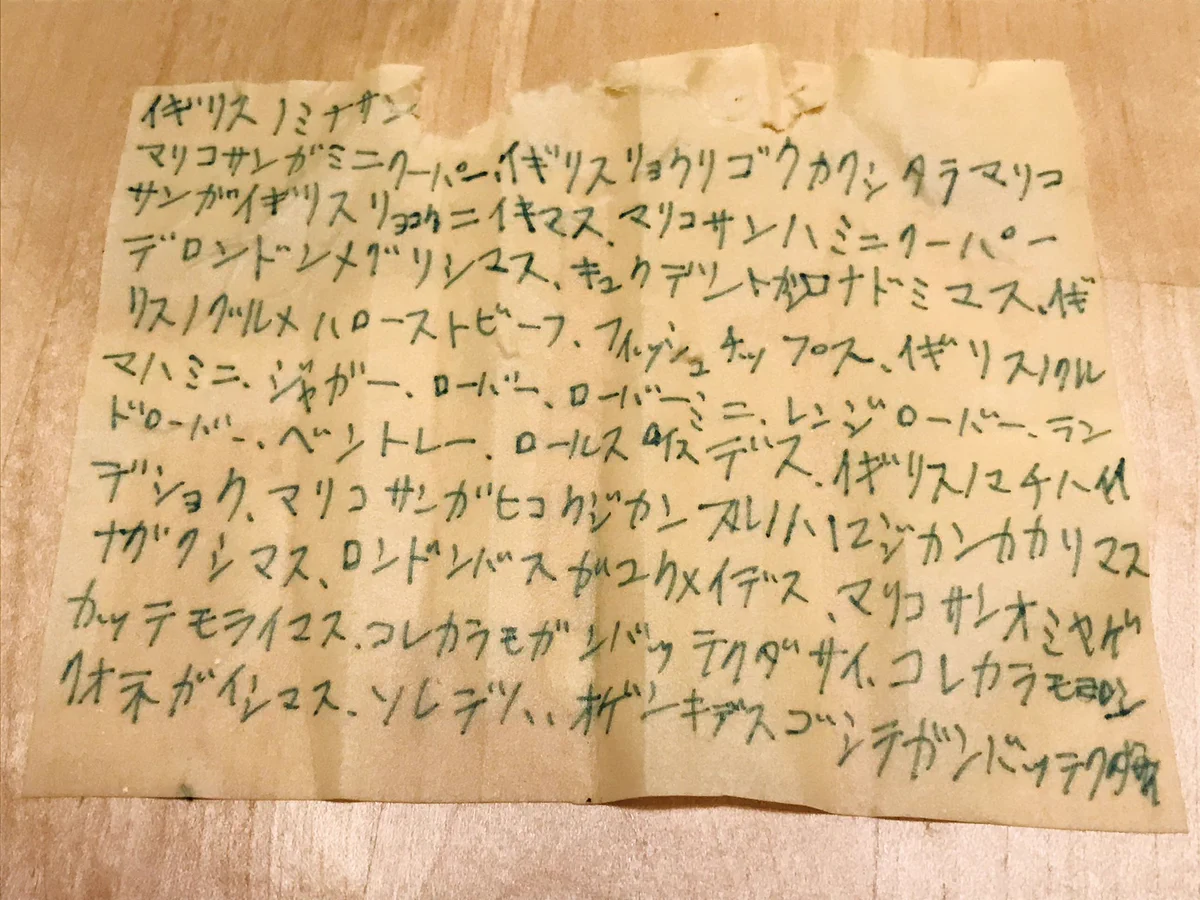 イギリスノミナサン
マリコサンガミニクーパー、イギリスリョウリゴウカクシタラマリコ
サンガイギリスリョコウニイキマス、マリコサンハミニクーパー
デロンドンメグリシマス、キュウデリントガコロナドミマス、イギ
リスノグルメハローストビーフ、フィッシュチップス、イギリスノクル
マハミニ、ジャガー、ローバー、ローバーミニ、レンジローバー、ラン
ドローバー、ベントレー、ロールスロイスデス、イギリスノマチハ
デショウ、マリコサンガヒコウジカンスルノハ12ジカンカカリマス
ナガクシマス、ロンドンバスガユウメイデス、マリコサンオミヤゲ
カッテモライマス、コレカラモガンバッテクダサイ、コレカラモヨロシ
クオネガイシマス、ソレデワ、、オゲンキデスゴシンテガンバッテクダサイ